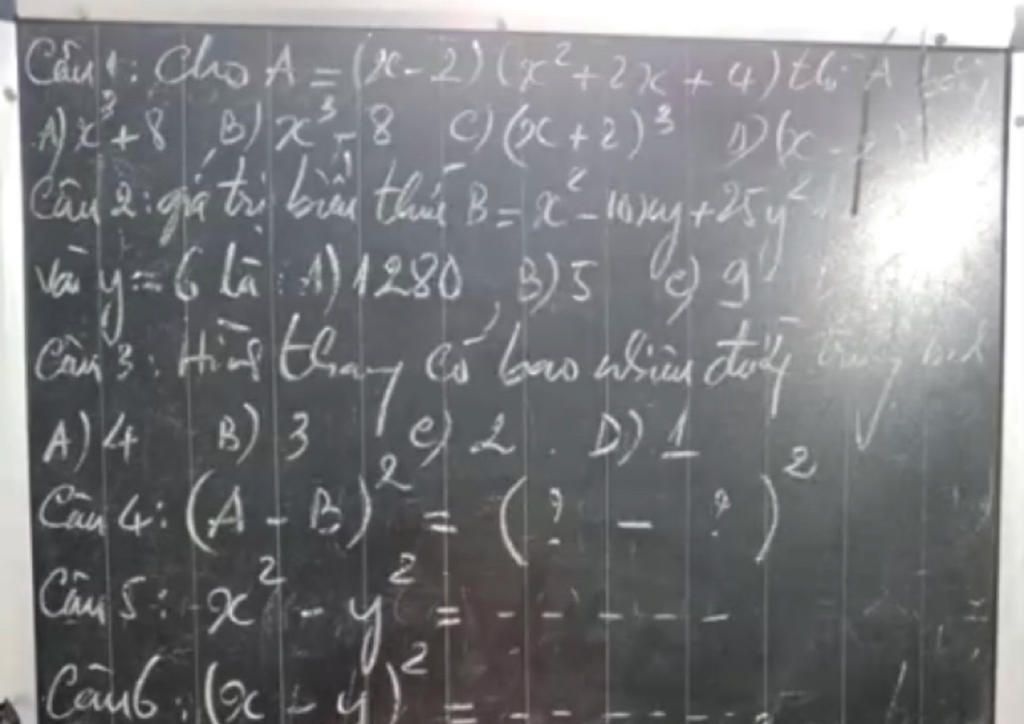 Câu 1: Cho A = (x - 2)(x² + 2x + 4) thì A
A) x³ + 8 B) x³ - 8 C) (x + 2)³ D) (x -
Câu 2: giá trị biểu thức B = x² - 10xy + 25y²
và y = 6 là: A) 1280 B) 5 C) 9
Câu 3: Hình thang có bao nhiêu đường trung bình
A) 4 B) 3 C) 2 . D) 1
Câu 4: (A - B)² = (? - ?)²
Câu 5: x² - y² = - - - - - -
Câu 6: (x - y)² = - - - - - -